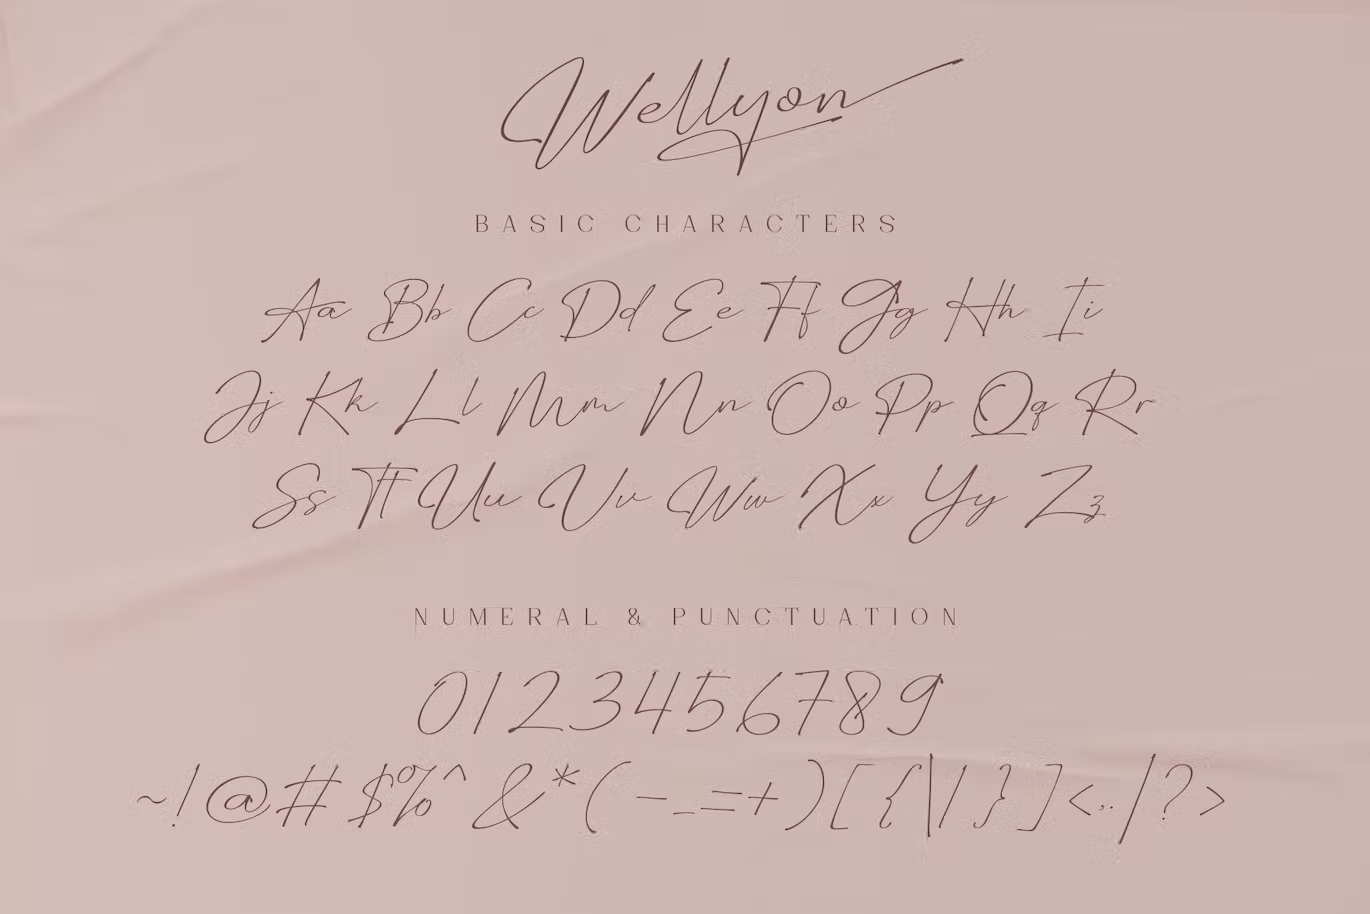 Wellyon
BASIC CHARACTERS
Aa Bb Cc Dd Ee Ff Gg Hh Ii
Jj Kk Ll Mm Nn Oo Pp Qq Rr
Ss Tt Uu Vv Ww Xx Yy Zz
NUMERAL & PUNCTUATION
0123456789
~!@#$%^&*(-_=+)[{|/}]<,./?>